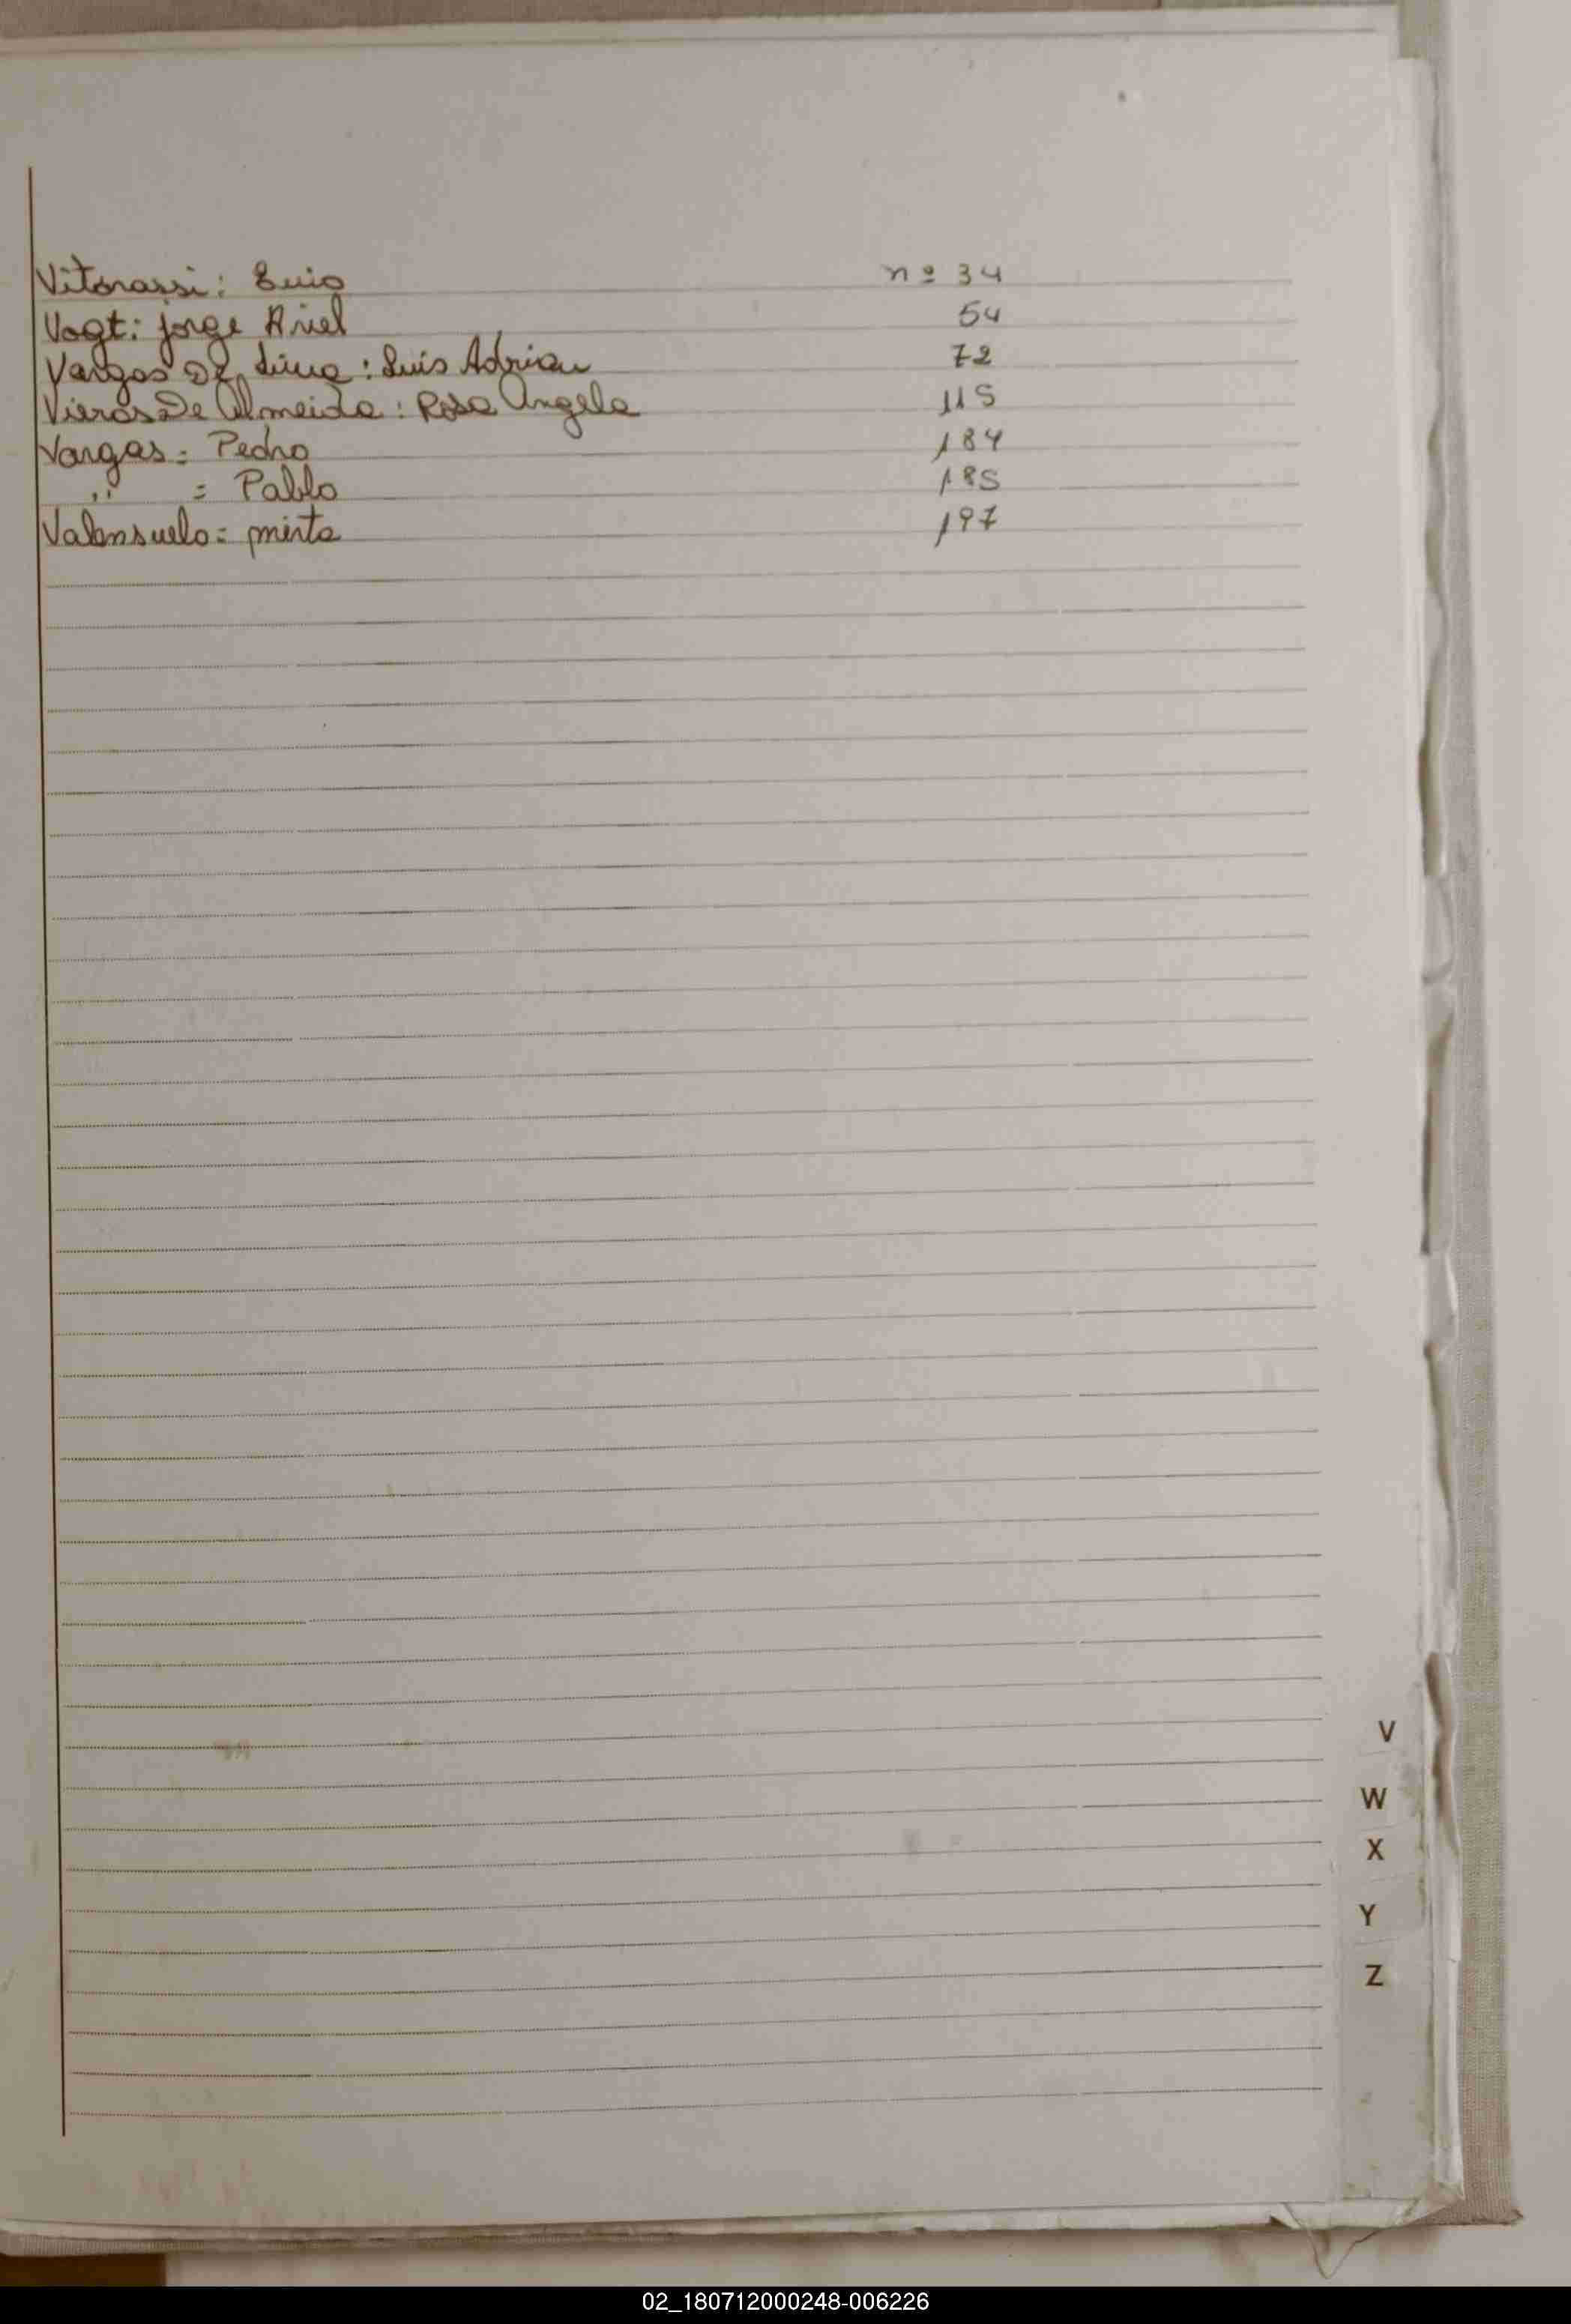 Vitorassi: Enio nº 34
Vogt: Jorge Ariel 54
Vargas De Lima: Luis Adrian 72
Vieras De Almeida: Rosa Angela 115
Vargas = Pedro 184
,, = Pablo 185
Valensuelo = mirta 197
V
W
X
Y
Z
02_180712000248-006226